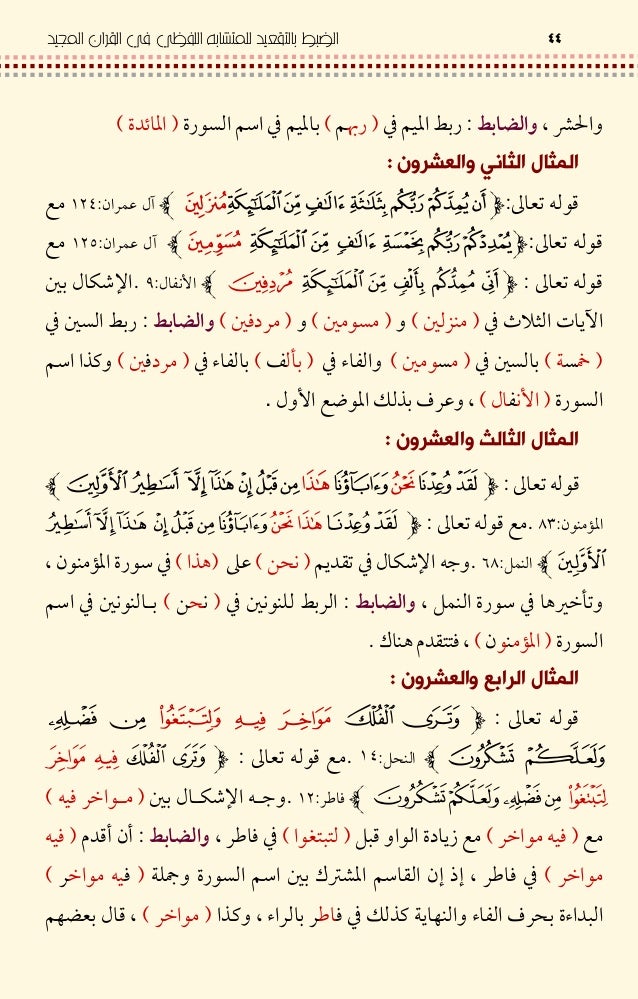 ٤٤ الضبط بالتقعيد للمتشابه اللفظي في القرآن المجيد
والحشر ، والضابط : ربط الميم في ( ربهم ) بالميم في اسم السورة ( المائدة )
المثال الثاني والعشرون :
قوله تعالى:﴿ أَن يُمِدَّكُمْ رَبُّكُم بِثَلَٰثَةِ ءَالَٰفٍ مِّنَ ٱلْمَلَٰٓئِكَةِ مُنزَلِينَ ﴾ آل عمران:١٢٤ مع
قوله تعالى:﴿ يُمْدِدْكُمْ رَبُّكُم بِخَمْسَةِ ءَالَٰفٍ مِّنَ ٱلْمَلَٰٓئِكَةِ مُسَوِّمِينَ ﴾ آل عمران:١٢٥ مع
قوله تعالى : ﴿ أَنِّى مُمِدُّكُم بِأَلْفٍ مِّنَ ٱلْمَلَٰٓئِكَةِ مُرْدِفِينَ ﴾ الأنفال:٩ .الإشكال بين
الآيات الثلاث في ( منزلين ) و ( مسومين ) و ( مردفين ) والضابط : ربط السين في
( خمسة ) بالسين في ( مسومين ) والفاء في ( بألف ) بالفاء في ( مردفين ) وكذا اسم
السورة ( الأنفال ) ، وعرف بذلك الموضع الأول .
المثال الثالث والعشرون :
قوله تعالى : ﴿ لَقَدْ وُعِدْنَا نَحْنُ وَءَابَآؤُنَا هَٰذَا مِن قَبْلُ إِنْ هَٰذَآ إِلَّآ أَسَٰطِيرُ ٱلْأَوَّلِينَ ﴾
المؤمنون:٨٣ .مع قوله تعالى : ﴿ لَقَدْ وُعِدْنَا هَٰذَا نَحْنُ وَءَابَآؤُنَا مِن قَبْلُ إِنْ هَٰذَآ إِلَّآ أَسَٰطِيرُ
ٱلْأَوَّلِينَ ﴾ النمل:٦٨ .وجه الإشكال في تقديم ( نحن ) على (هذا ) في سورة المؤمنون ،
وتأخيرها في سورة النمل ، والضابط : الربط للنونين في ( نحن ) بـالنونين في اسم
السورة ( المؤمنون ) ، فتتقدم هناك .
المثال الرابع والعشرون :
قوله تعالى : ﴿ وَتَرَى ٱلْفُلْكَ مَوَاخِرَ فِيهِ وَلِتَبْتَغُوا۟ مِن فَضْلِهِۦ
وَلَعَلَّكُمْ تَشْكُرُونَ ﴾ النحل:١٤ .مع قوله تعالى : ﴿ وَتَرَى ٱلْفُلْكَ فِيهِ مَوَاخِرَ
لِتَبْتَغُوا۟ مِن فَضْلِهِۦ وَلَعَلَّكُمْ تَشْكُرُونَ ﴾ فاطر:١٢ .وجـه الإشكـال بين ( مـواخر فيه )
مع ( فيه مواخر ) مع زيادة الواو قبل ( لتبتغوا ) في فاطر ، والضابط : أن أقدم ( فيه
مواخر ) في فاطر ، إذ إن القاسم المشترك بين اسم السورة وجملة ( فيه مواخر )
البداءة بحرف الفاء والنهاية كذلك في فاطر بالراء ، وكذا ( مواخر ) ، قال بعضهم